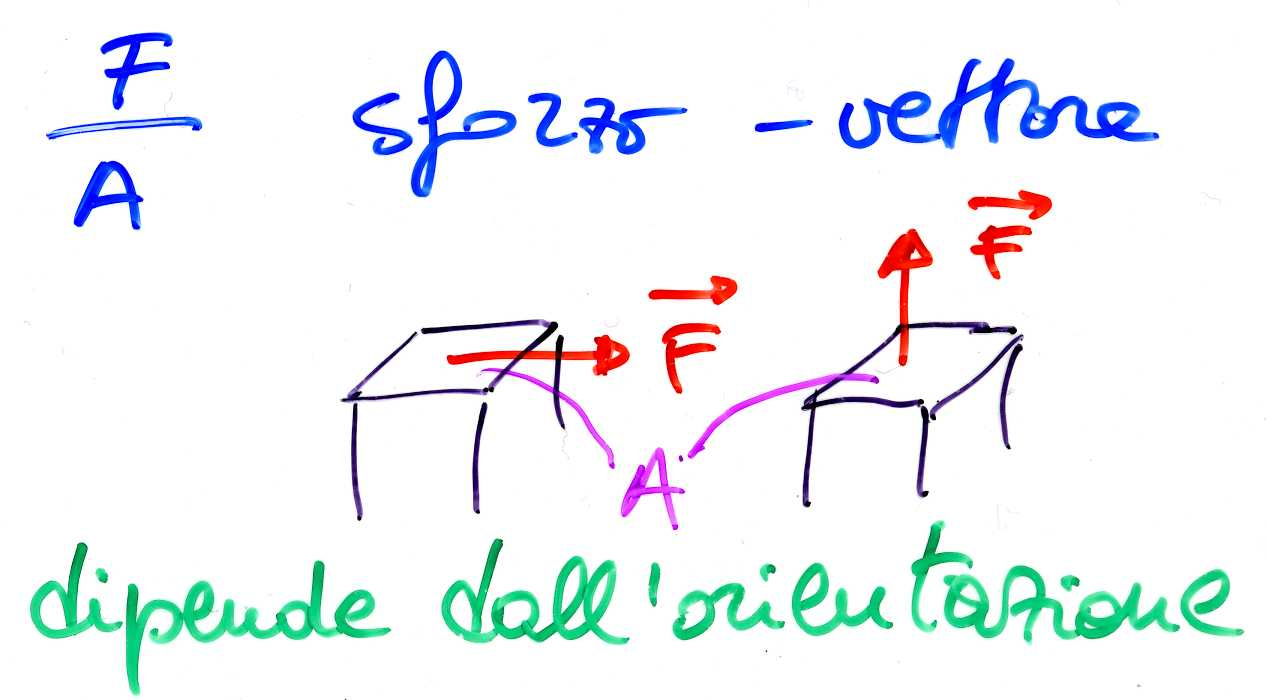 F
A
sforzo - vettore
F
F
A
dipende dall'orientazione